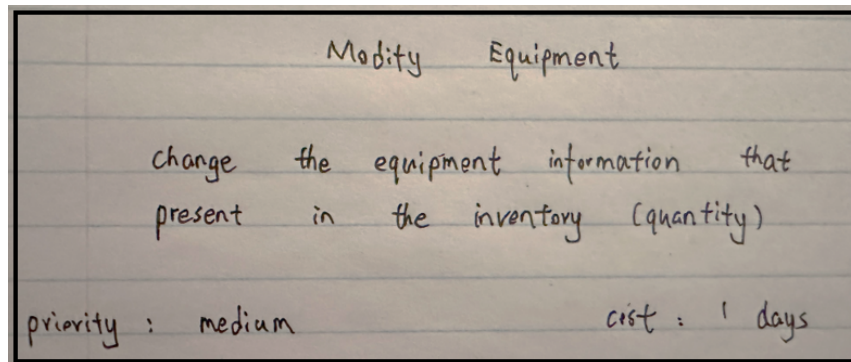 Modify Equipment
change the equipment information that
present in the inventory (quantity)
priority : medium cost : 1 days